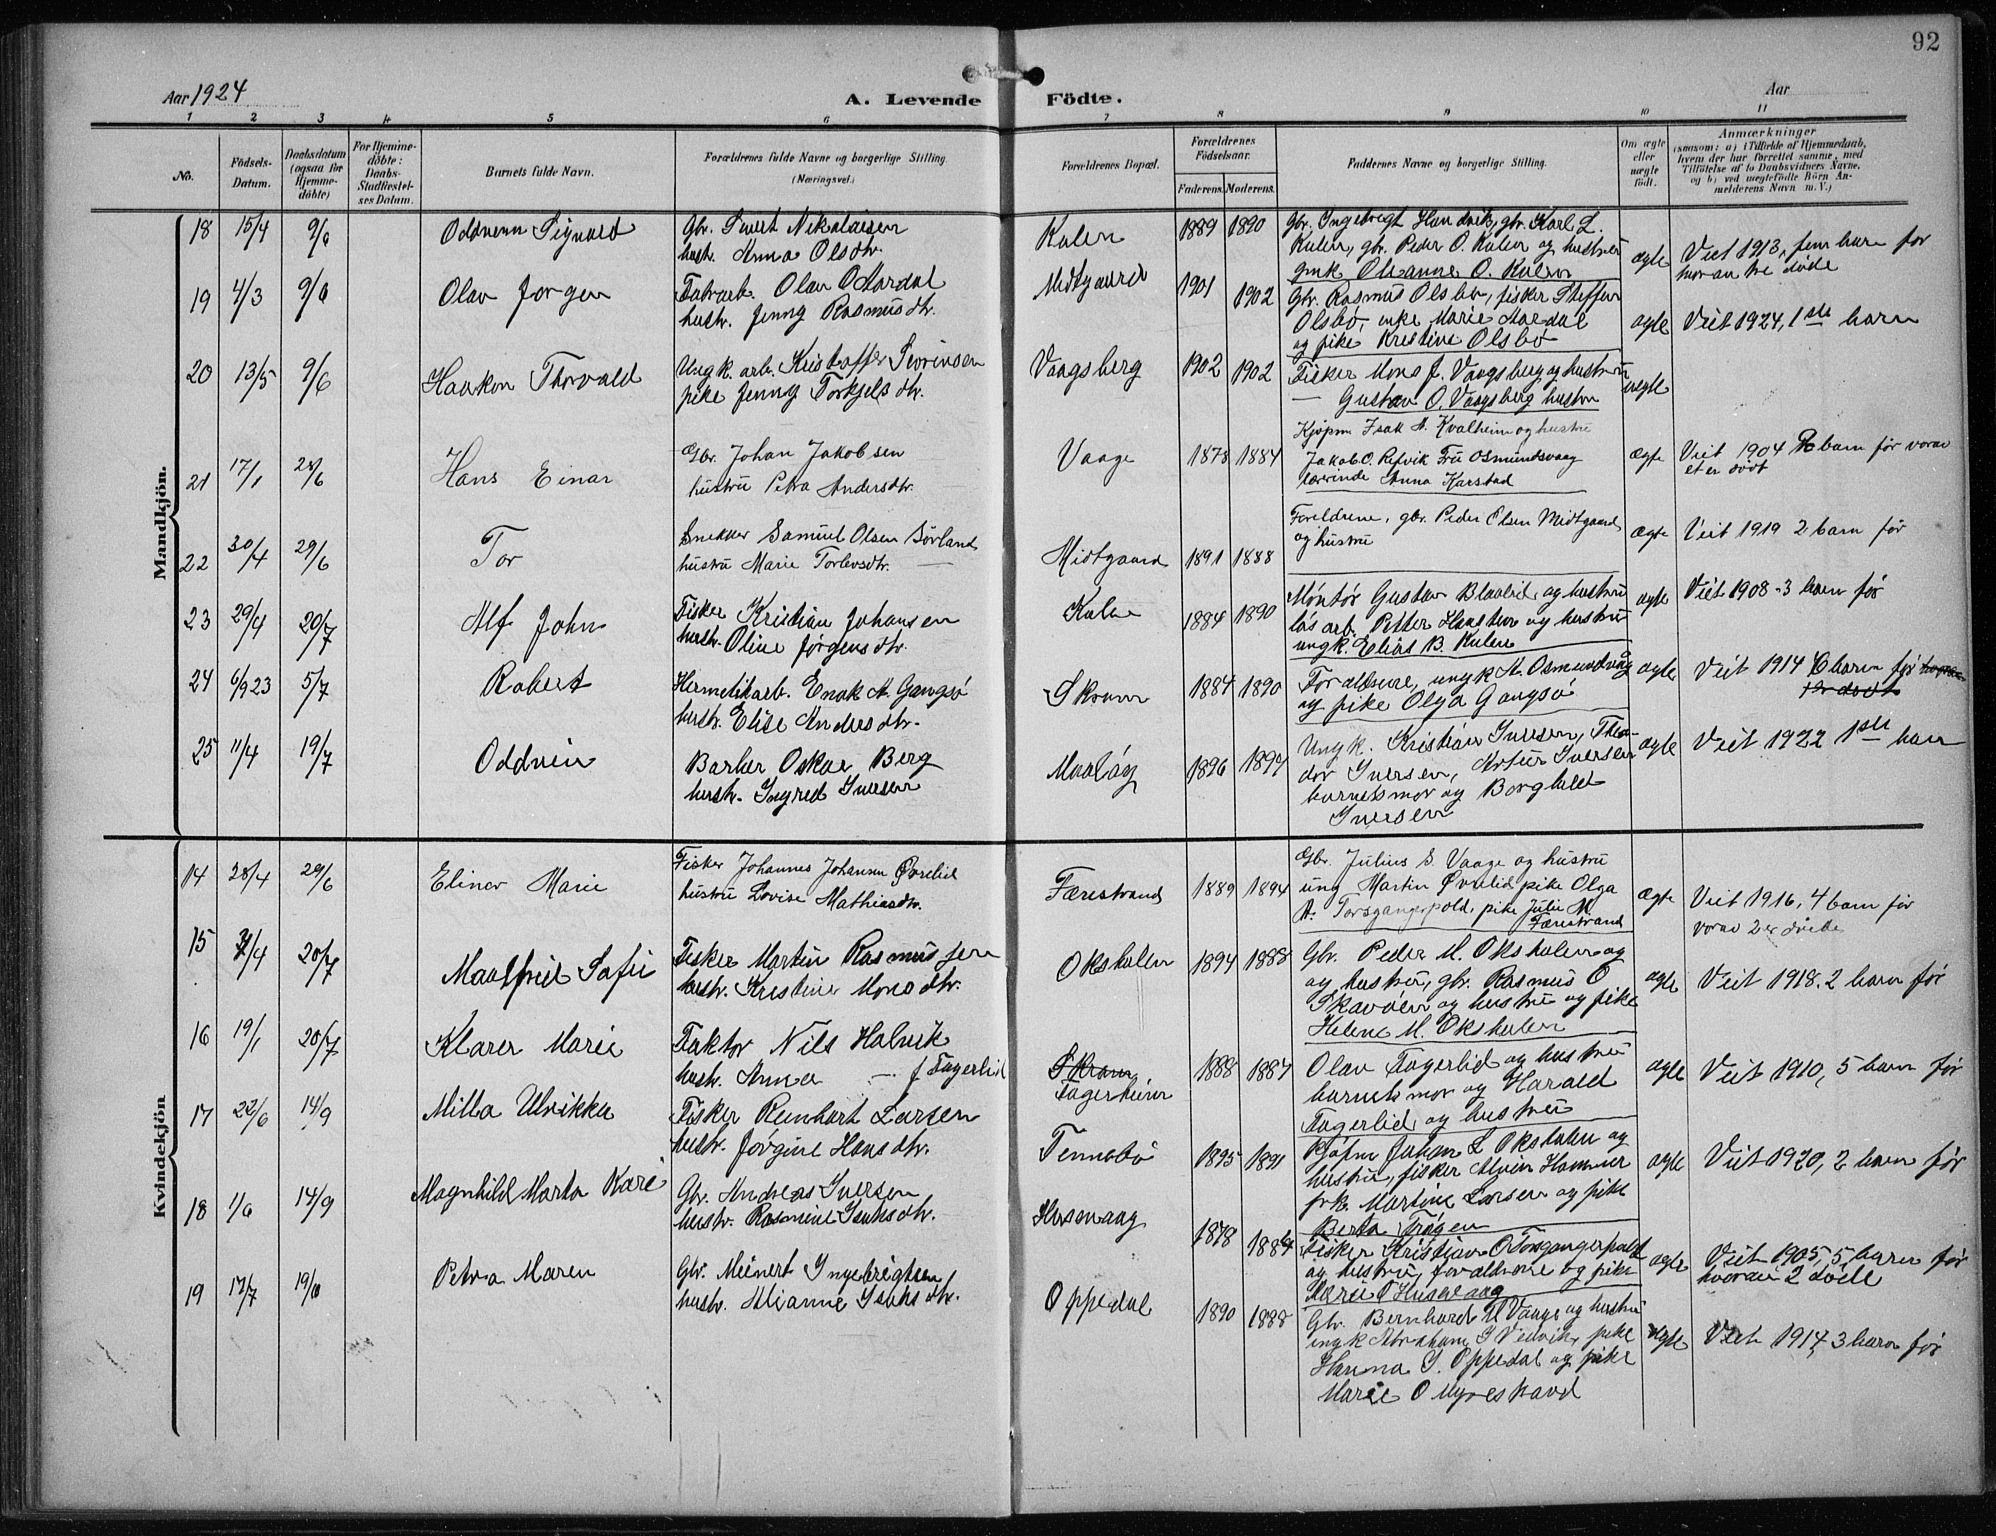 92
Aar 1924
A. Levende Födte.
Aar
1 2 3 4 5 6 7 8 9 10 11
No.
Födsels-Datum.
Daabsdatum (ogsaa for Hjemme-döbte)
For Hjemme-döbte: Daabs-Stadfæstel-ses Datum.
Barnets fulde Navn.
Forældrenes fulde Navne og borgerlige Stilling.
(Næringsvei.)
Forældrenes Bopæl.
Forældrenes Födselsaar.
Faderens. Moderens.
Faddernes Navne og borgerlige Stilling.
Om ægte eller uægte födt.
Anmærkninger
(saasom: a) i Tilfælde af Hjemmedaab, hvem der har forrettet samme, med Tilföielse af to Daabsvidners Navne, og b) ved uegtefödte Börn An-melderens Navn m. V.)
Mandkjön.
18 15/4 9/6 Oddmenn Sigvald
Gbr. Sivert Nikolaisen
hustr. Anna Olsdtr.
Kulen 1889 1890
Gbr. Ingebrigt Handvik, gbr. Karl L.
Kulen, gbr. Peder O. Kulen og hustru
gmk Oleanne O. Kulen
ægte Viet 1913, fem barn før
hvorav tre døde
19 4/3 9/6 Olav Jørgen
Fabrarb. Olav O Aardal
hustr. Jenny Rasmusdtr.
Midtgaard 1901 1902
Gbr. Rasmus Olsbø, fisker Steffen
Olsbø, enke Marie Aardal
og pike Kristine Olsbø
ægte Viet 1924, 1ste barn
20 13/5 9/6 Haakon Thorvald
Ungk. arb. Kristoffer Severinsen
pike Jenny Torkjelsdtr.
Vaagsberg 1902 1902
Fisker Mons J. Vaagsberg og hustru
— Gustav O. Vaagsberg hustru
uegte
21 17/1 28/6 Hans Einar
Gbr. Johan Jakobsen
hustru Petra Andersdtr.
Vaage 1878 1884
Kjøpm Isak A. Kvalheim og hustru
Jakob O. Refvik Fru Osmundsvaag
lærerinde Anna Karstad
ægte Viet 1904 barn før vorav
et er dødt
22 30/4 29/6 Tor
Snekker Samuel Olsen Sørland
hustru Marie Torlevsdtr.
Midtgaard 1891 1888
Foreldrene, gbr. Peder Olsen Midtgaard
og hustru
ægte Viet 1919 2 barn før
23 29/4 20/7 Alf John
Fisker Kristian Johansen
hustr. Oline Jørgensdtr.
Kulen 1884 1890
Montør Gustav Blaalid og hustru
løsarb. Petter Hanstun og hustru
ungk. Elias B. Kulen
ægte Viet 1908 - 3 barn før
24 6/9 23 5/7 Robert
Hermetikarb. Enok A. Gangsø
hustr. Elise Andersdtr.
Skram 1884 1890
Foraldrene, ungk A. Osmundvaag
og pike Olga Gangsø
ægte Viet 1914 6 barn før
25 11/4 19/7 Oddvin
Barber Oskar Berg
hustr. Ingrid Iversen
Maaløy 1896 1897
Ungk. Kristian Iversen, Theo-
dor Iversen, Artur Iversen
barnets mor og Borghild
Iversen
ægte Viet 1922 1ste barn
Kvindekjön
14 28/4 29/6 Elinor Marie
Fisker Johannes Johansen Øvrelid
hustru Lovise Mathiasdtr.
Færestrand 1889 1894
Gbr. Julius S. Vaage og hustru
ung Martin Øvrelid pike Olga
A. Torsgangerpold, pike Julie M.
Færestrand
ægte Viet 1916, 4 barn før
vorav 2 er døde
15 /4 20/7 Maalfrid Sofie
Fisker Martin Rasmussen
hustr. Kristine Monsdtr.
Okshalen 1894 1888
Gbr. Peder M. Okshalen og
og hustru, gbr. Rasmus O
Skavøen og hustru og pike
Helene M. Okshalen
ægte Viet 1918. 2 barn før
16 19/1 20/7 Klara Marie
Faktor Nils Halvik
hustr. Anna — f Fagerlid
Skram
Fagerheim 1888 1887
Olav Fagerlid og hustru
barnets mor og Harald
Fagerlid og hustru
ægte Viet 1910, 5 barn før
17 22/6 14/9 Milla Ulrikke
Fisker Reinhart Larsen
hustr. Jørgine Hansdtr.
Tennebø 1895 1891
Kjøpm Johan L Okshalen og
hustru, fisker Alvin Hammer
frk. Martine Larsen og pike
Berta Trøen
ægte Viet 1920, 2 barn før
18 1/6 14/9 Magnhild Marta Kari
Gbr. Andreas Iversen
hustr. Rasmine Isaksdtr.
Husevaag 1878 1884
Fisker Kristian O Torsgangerpold
og hustru, foraldrene og pike
Marie O Husevaag
ægte Viet 1905, 5 barn før
hvorav 2 døde
19 17/7 19/10 Petra Maren
Gbr. Meinert Ingebrigtsen
hustr. Mianne Isaksdtr.
Oppedal 1890 1888
Gbr. Bernhard M Vaage og hustru
ungk Abraham I Vedvik, pike
Hanna I. Oppedal og pike
Marie O Myrestrand
ægte Viet 1914, 3 barn før